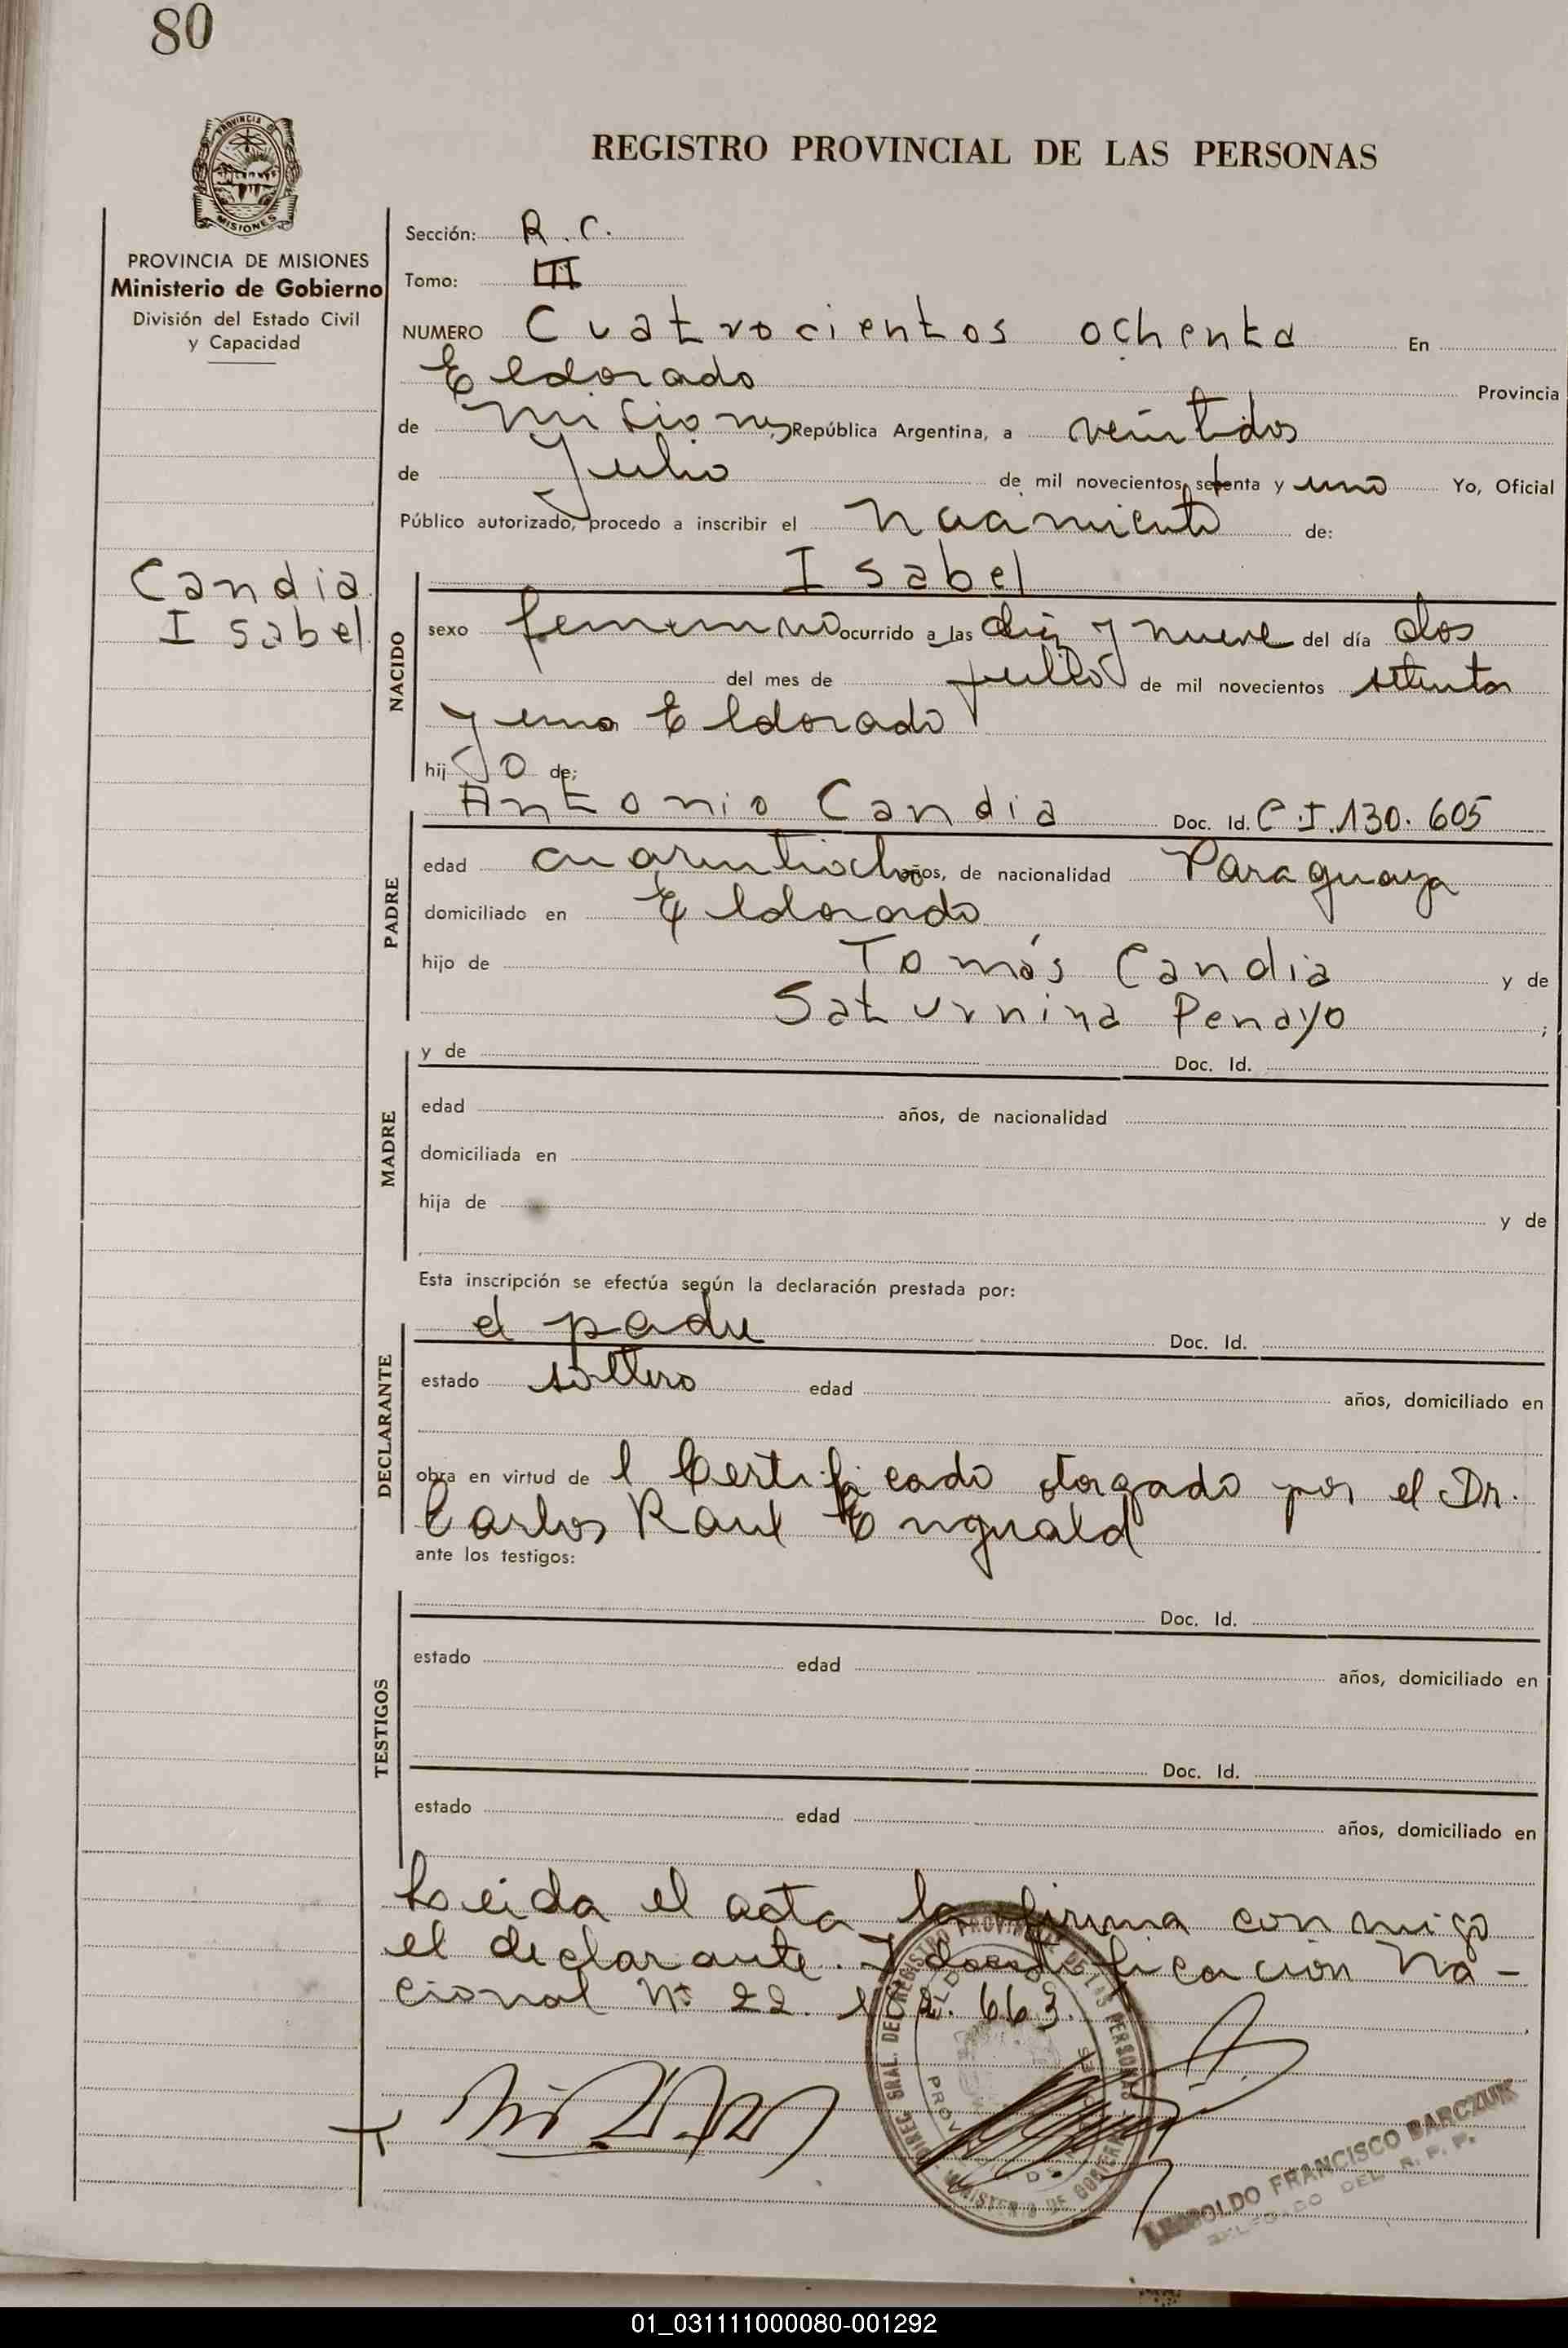 80
PROVINCIA DE
MISIONES
REGISTRO PROVINCIAL DE LAS PERSONAS
PROVINCIA DE MISIONES
Ministerio de Gobierno
División del Estado Civil
y Capacidad
Candia
Isabel
Sección: R. C.
Tomo: III
NUMERO Cuatrocientos ochenta En
Eldorado Provincia
de Misiones República Argentina, a veintidos
de Julio de mil novecientos setenta y uno Yo, Oficial
Público autorizado, procedo a inscribir el nacimiento de:
Isabel
NACIDO
sexo femenino ocurrido a las diez y nueve del día dos
del mes de julio de mil novecientos setenta
y uno Eldorado
hijo de;
Antonio Candia Doc. Id. C.I. 130.605
PADRE
edad cuarentiocho años, de nacionalidad Paraguaya
domiciliado en Eldorado
hijo de Tomás Candia y de
Saturnina Penayo ;
y de Doc. Id.
MADRE
edad años, de nacionalidad
domiciliada en
hija de y de
Esta inscripción se efectúa según la declaración prestada por:
el padre Doc. Id.
DECLARANTE
estado soltero edad años, domiciliado en
obra en virtud de l Certificado otorgado por el Dr.
Carlos Raul Enguald
ante los testigos:
Doc. Id.
TESTIGOS
estado edad años, domiciliado en
Doc. Id.
estado edad años, domiciliado en
Leida el acta la firma con migo
el declarante. Identificación Na-
cional Nº 22. 663.
DIREC. GRAL. DEL REGISTRO PROVINCIAL DE LAS PERSONAS
MINISTERIO DE GOBIERNO
ELDORADO
LEOPOLDO FRANCISCO BARCZUK
DELEGADO DEL R. P. P.
01_031111000080-001292